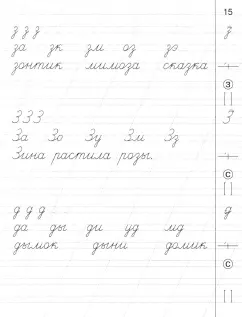 15
з з з з
за зк зм оз зо
зонтик мимоза сказка
З
З З З З
За Зо Зу Зм Зз
Зина растила розы.
С
д д д д
да ды ди уд мд
дымок дыни домик
С